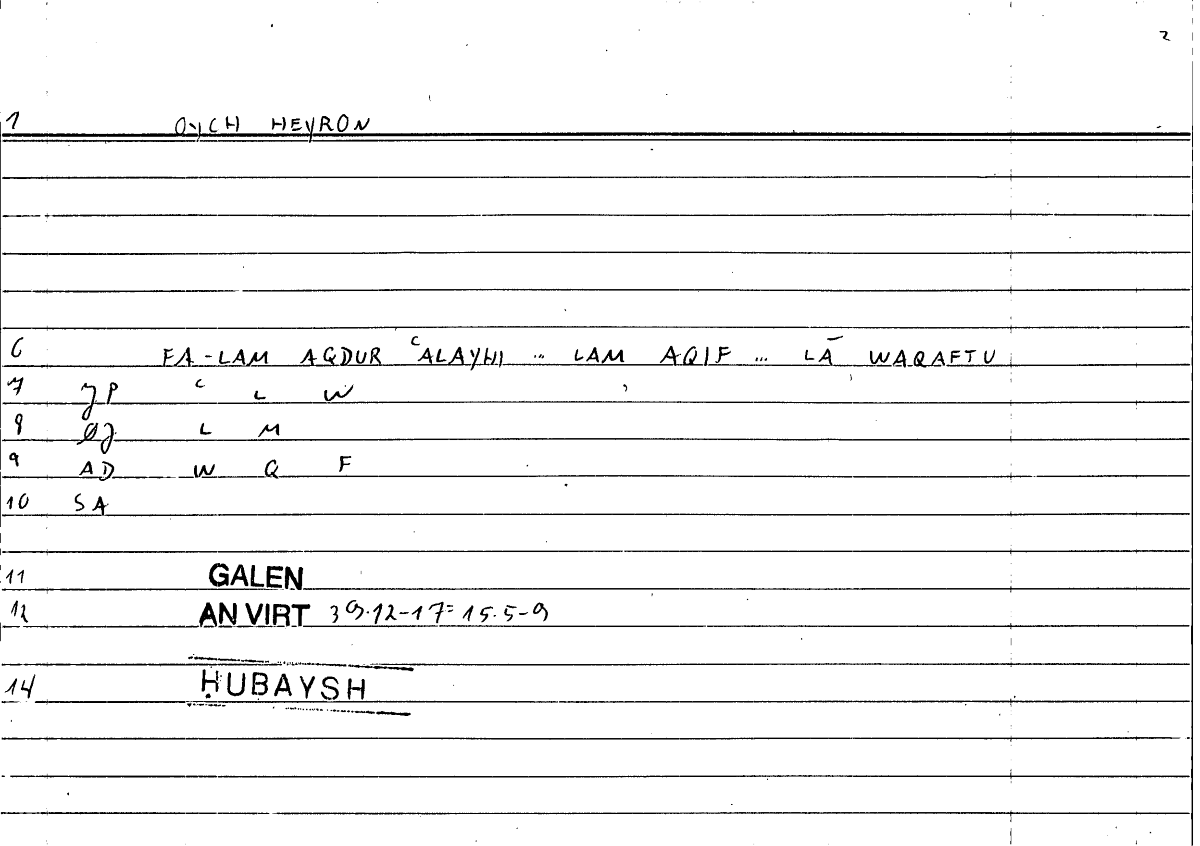 2
1 OyCH HEyRON
6 FA-LAM AQDUR ʿALAYHI … LAM AQIF … LĀ WAQAFTU
7 JP ʿ L W
8 ØJ L M
9 AD W Q F
10 SA
11 GALEN
12 AN VIRT 39.12-17=15.5-9
14 ḤUBAYSH